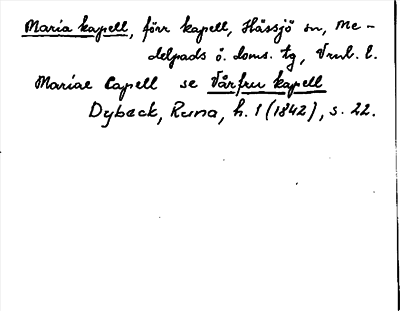 Maria kapell, förr kapell, Hässjö sn, Me-
delpads ö. doms. tg, Vnrl. l.
Mariae Capell se Vårfru kapell
Dybeck, Runa, h. 1 (1842), s. 22.